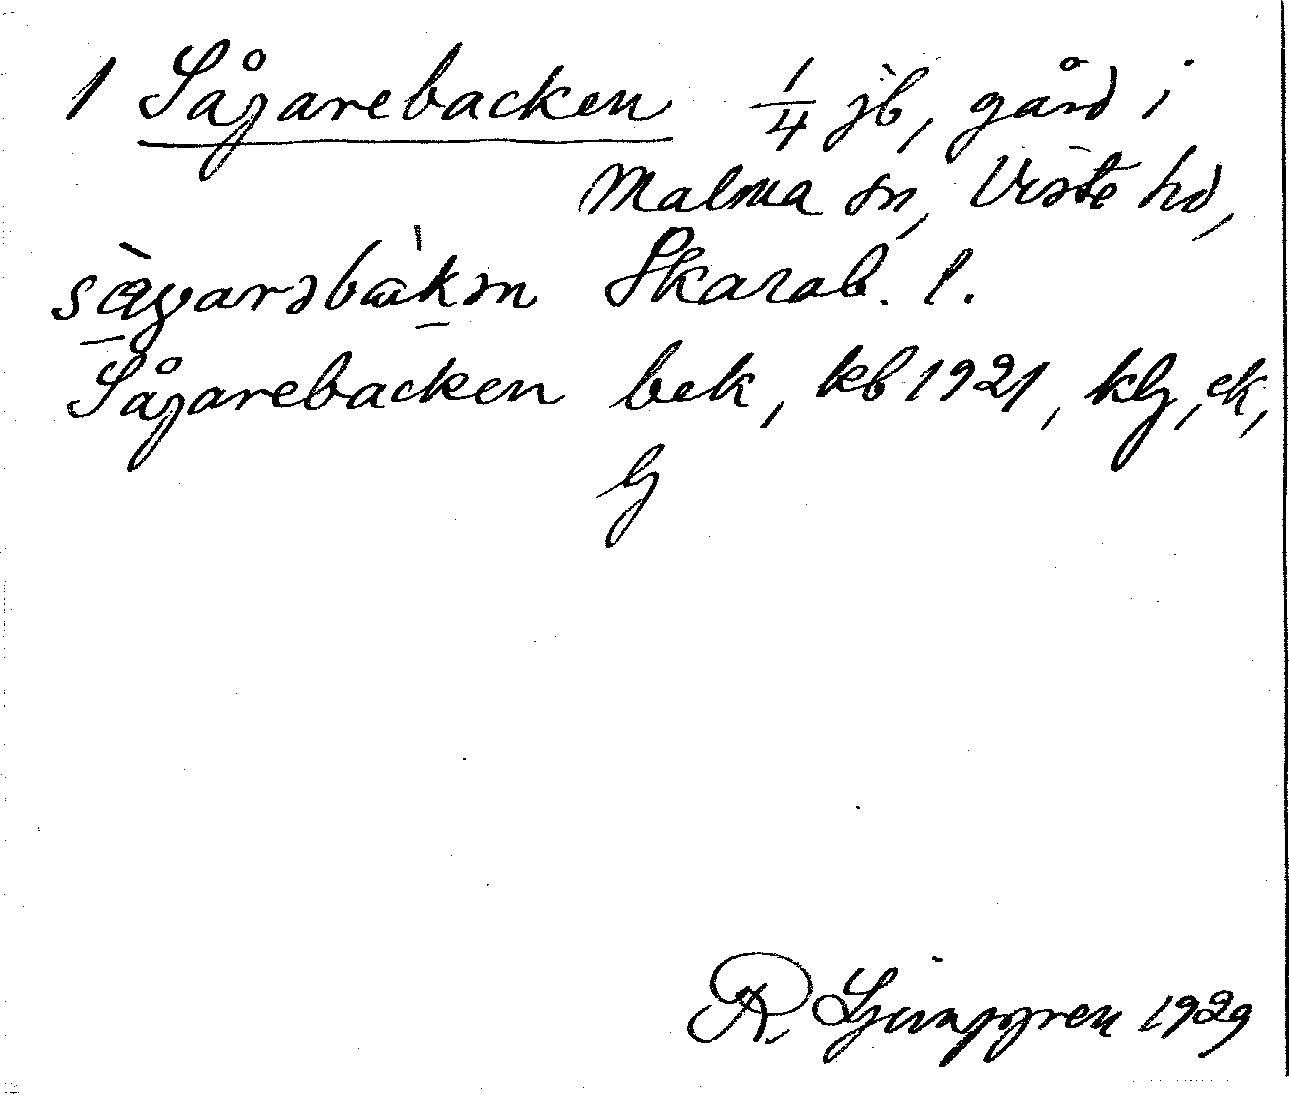 1 Sågarebacken 1/4 jb, gård i
Malma sn, Viste hd,
Skarab. l.
Sågarebacken bek, kb 1921, klj, ek,
lj
R. Ljunggren 1929